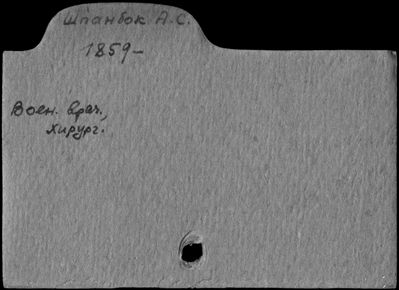 Шпанбок А.С.
1859-
Воен. врач,
хирург.